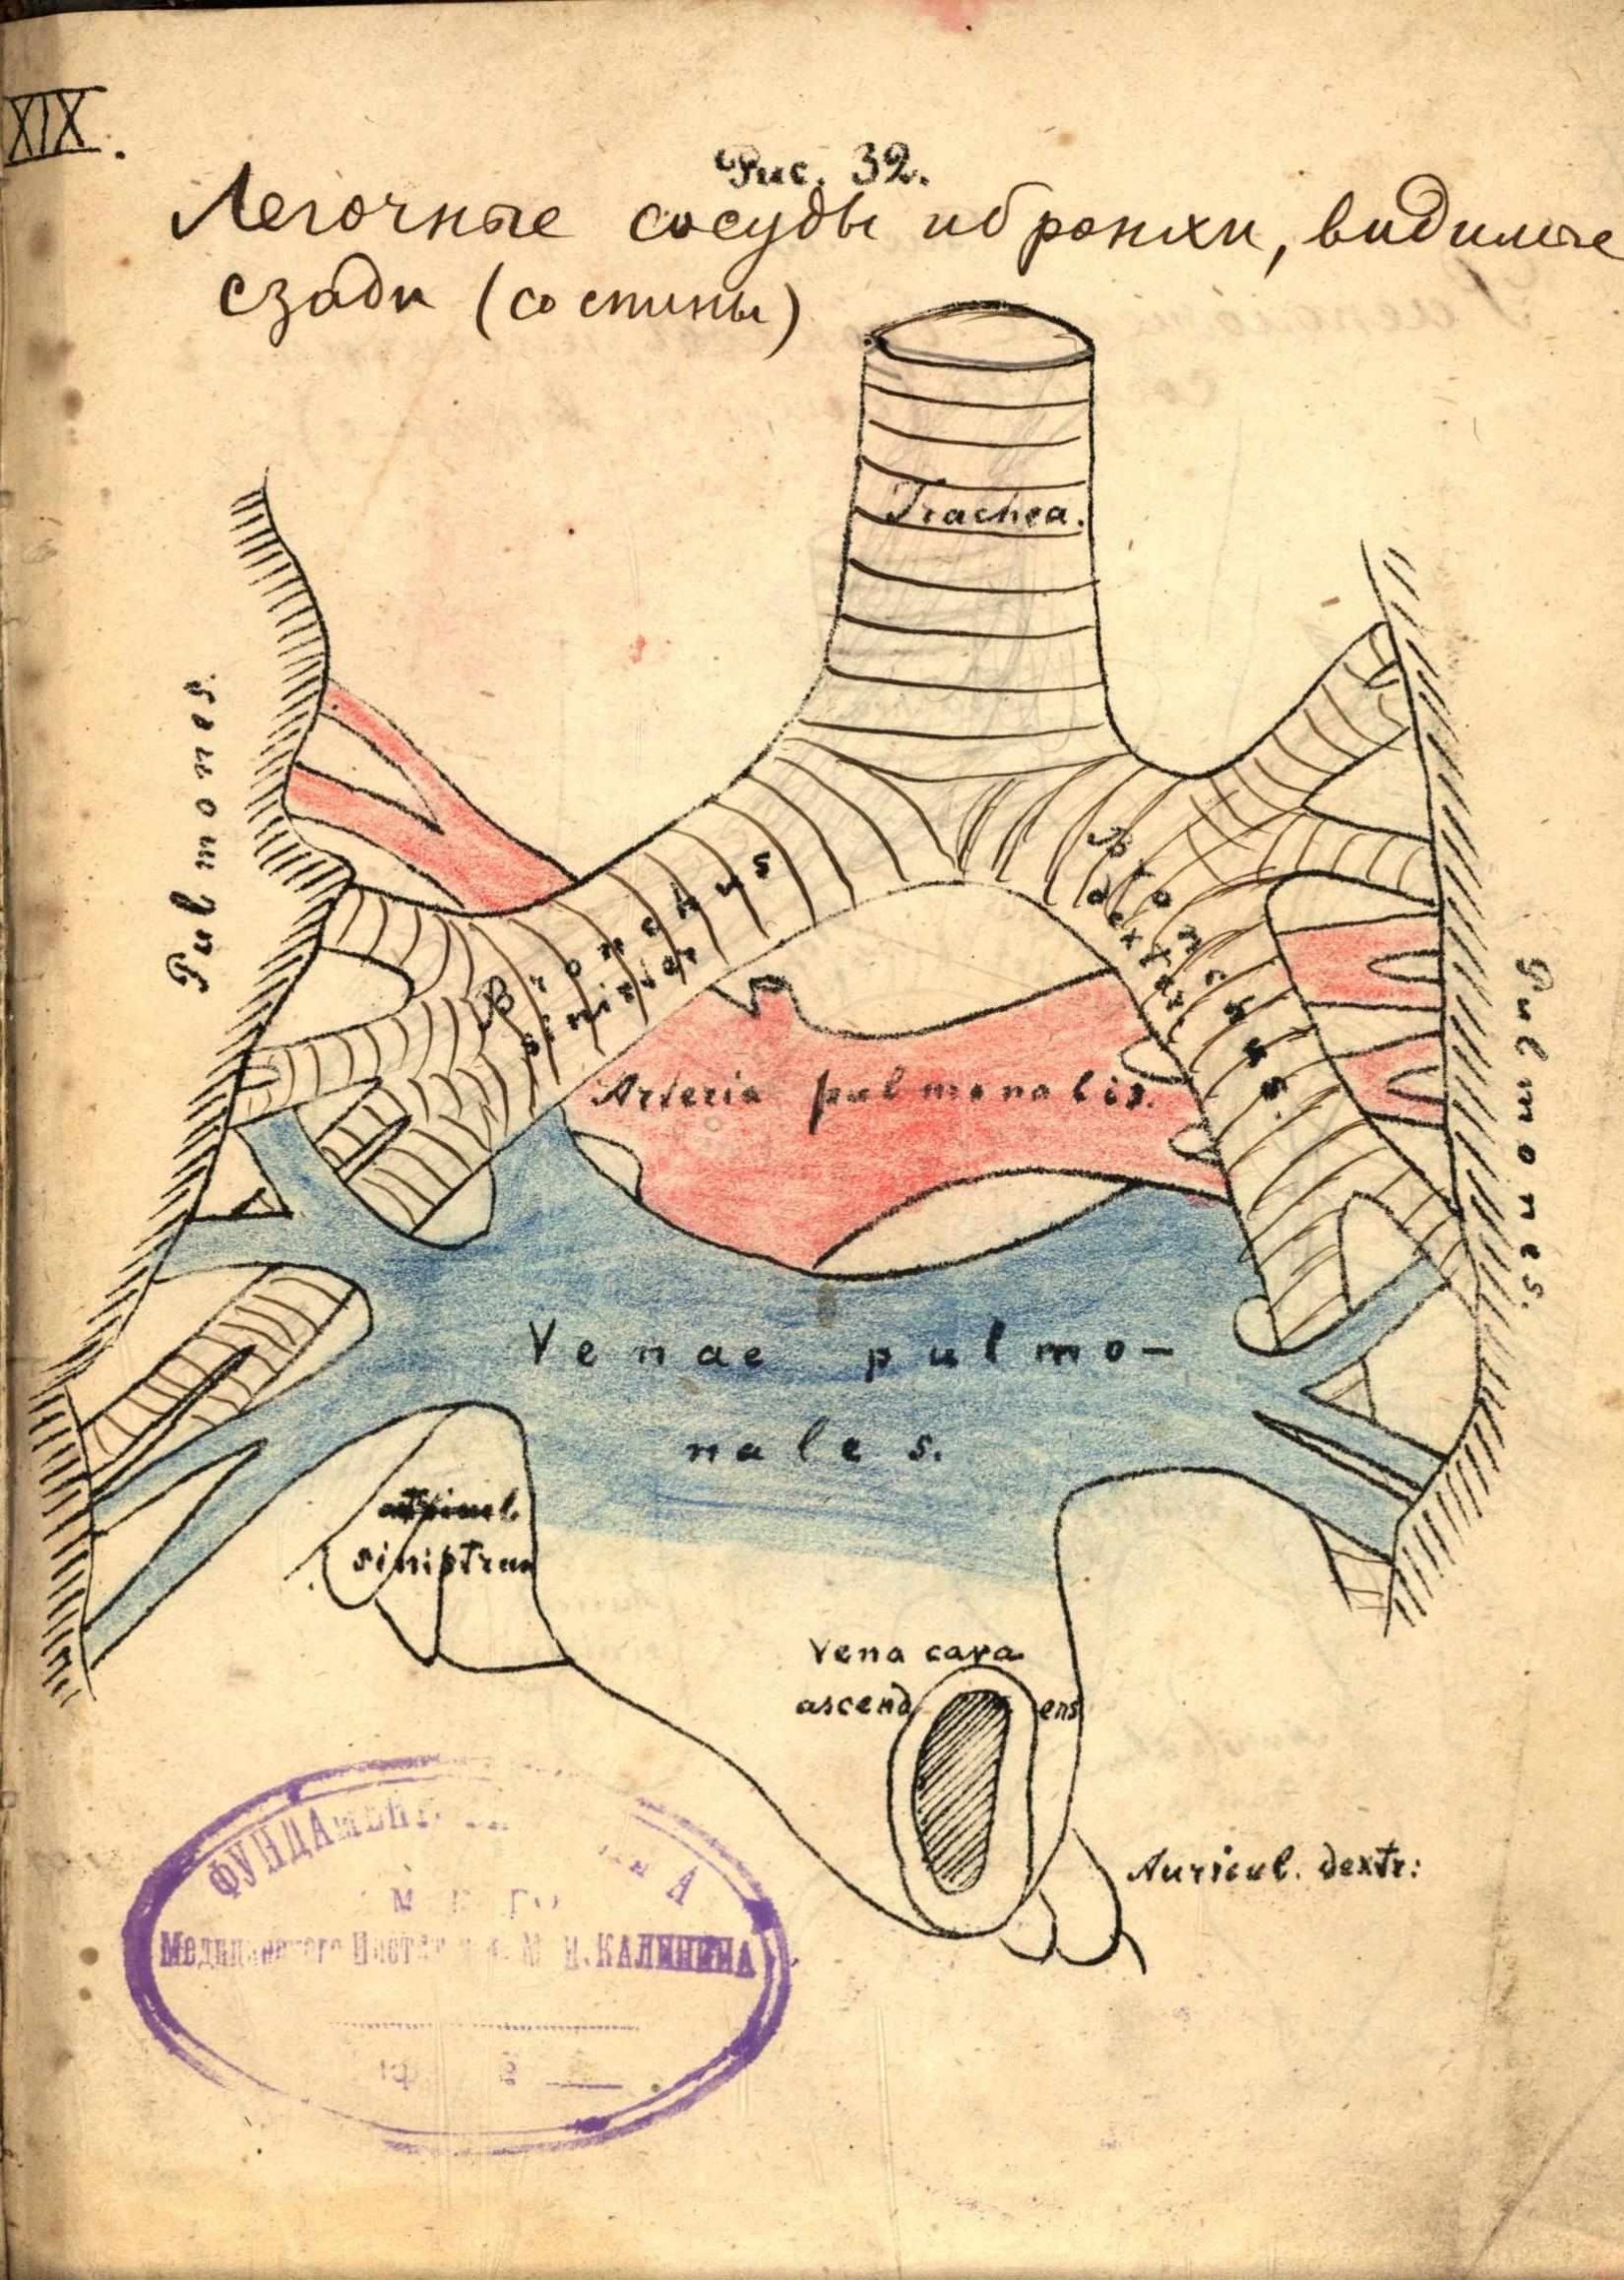 XIX.
Рис. 32.
Легочные сосуды и бронхи, видимые
сзади (со спины)
Trachea.
Pulmones.
Bronchus
sinister
Bronchus
dexter
Arteria pulmonalis.
Pulmones.
Venae pulmo-
nales.
sinistrum
Vena cava
ascendens
Auricul. dextr:
М. И. КАЛИНИНА